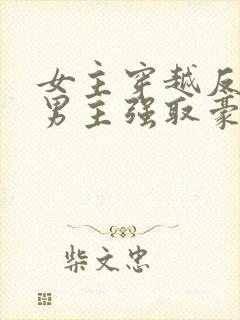 女主穿越反
男主强取豪
柴文忠